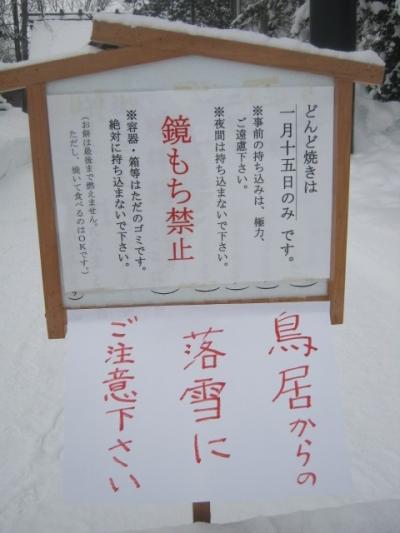 どんど焼きは
一月十五日のみ です。
※事前の持ち込みは、極力、
ご遠慮下さい。
※夜間は持ち込まないで下さい。
鏡もち禁止
※容器・箱等はただのゴミです。
絶対に持ち込まないで下さい。
（お餅は最後まで燃えません。
ただし、焼いて食べるのはOKです。）
鳥居からの
落雪に
ご注意下さい